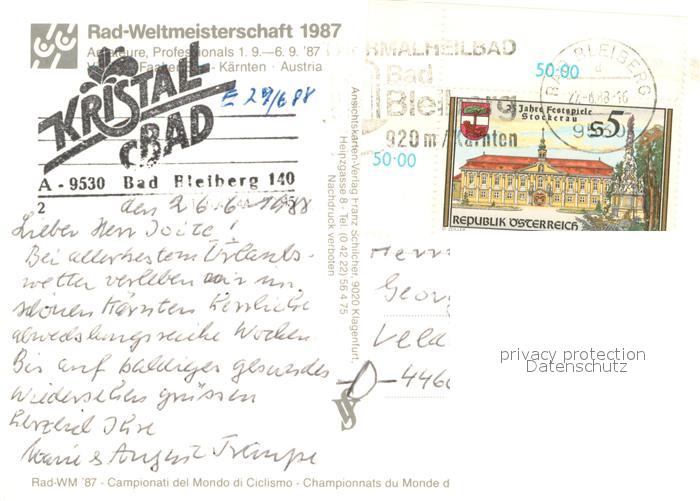 Rad-Weltmeisterschaft 1987
Amateure, Professionals 1. 9.—6. 9. '87
Kärnten · Austria
KRISTALL
BAD
E 29/6 88
A - 9530 Bad Bleiberg 140
2
THERMALHEILBAD
Bad
Bleiberg
920 m / Kärnten
50·00
50·00
BAD BLEIBERG
9530
25 Jahre Festspiele
Stockerau
S5
REPUBLIK ÖSTERREICH
den 26.6.1988
Lieber Herr
Bei allerbestem Urlaubs-
wetter verleben wir im
schönen Kärnten herrliche
abwechslungsreiche Wochen.
Bis auf baldiges gesundes
Wiedersehen grüssen
herzlich Ihre
August
Ansichtskarten-Verlag Franz Schilcher, 9020 Klagenfurt,
Heinzgasse 8 · Tel. (0 42 22) 56 4 75
Nachdruck verboten
Herrn
Georg
Veld
D-446
privacy protection
Datenschutz
Rad-WM '87 - Campionati del Mondo di Ciclismo - Championnats du Monde d